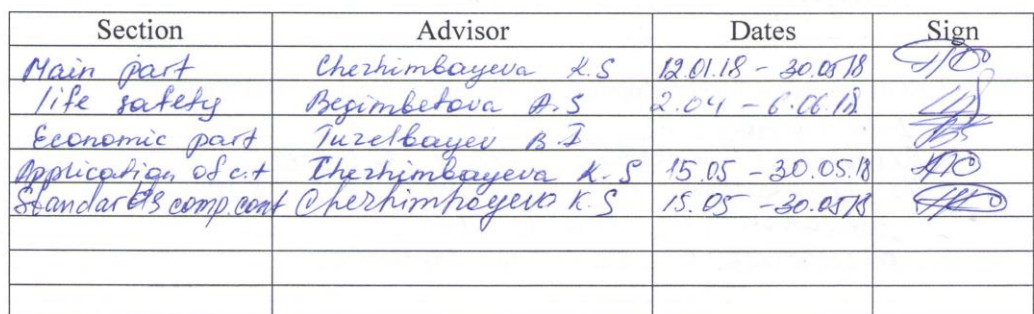 Section Advisor Dates Sign
Main part Cherhimbayeva K.S 12.01.18 - 30.05.18
life safety Begimbetova A.S 2.04 - 6.06.18
Economic part Tuzelbayev B.I
Application of c.t Cherhimbayeva K.S 15.05 - 30.05.18
comp. cont K.S 15.05 - 30.05.18